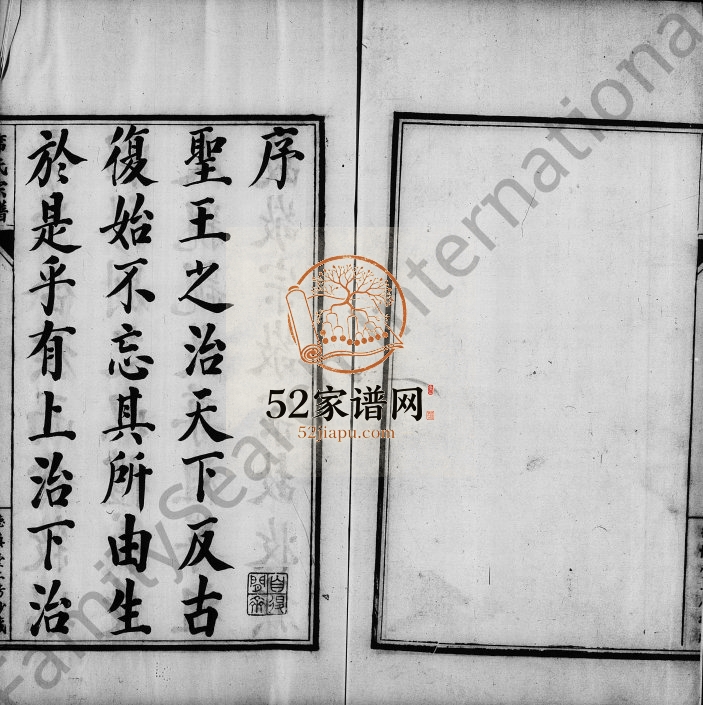 序
聖王之治天下反古
復始不忘其所由生
於是乎有上治下治
氏宗譜
52家谱网
52jiapu.com
FamilySearch International